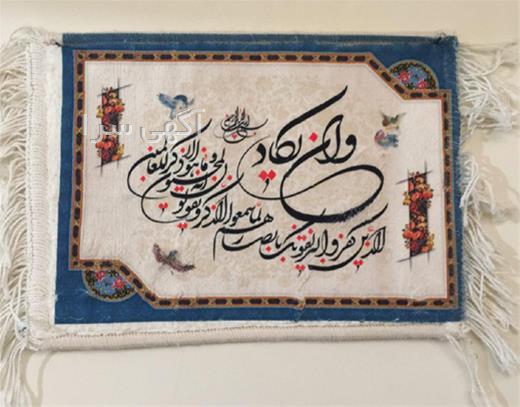 بسم الله الرحمن الرحیم
وان یکاد
الذین کفروا لیزلقونک بابصارهم
لما سمعوا الذکر و یقولون
انه لمجنون
و ما هو الا ذکر للعالمین
آگهی سرا